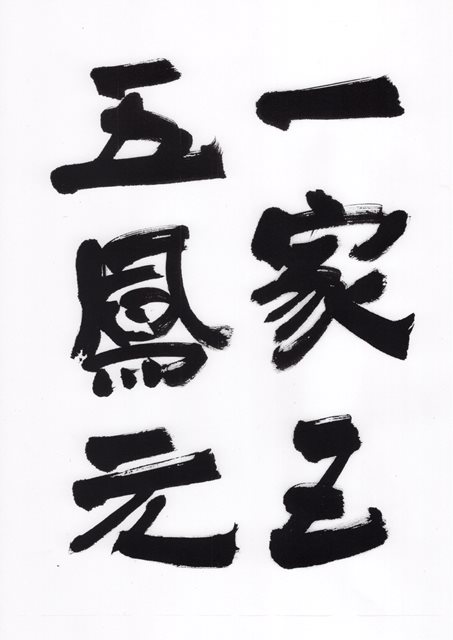 一家五
五鳳元